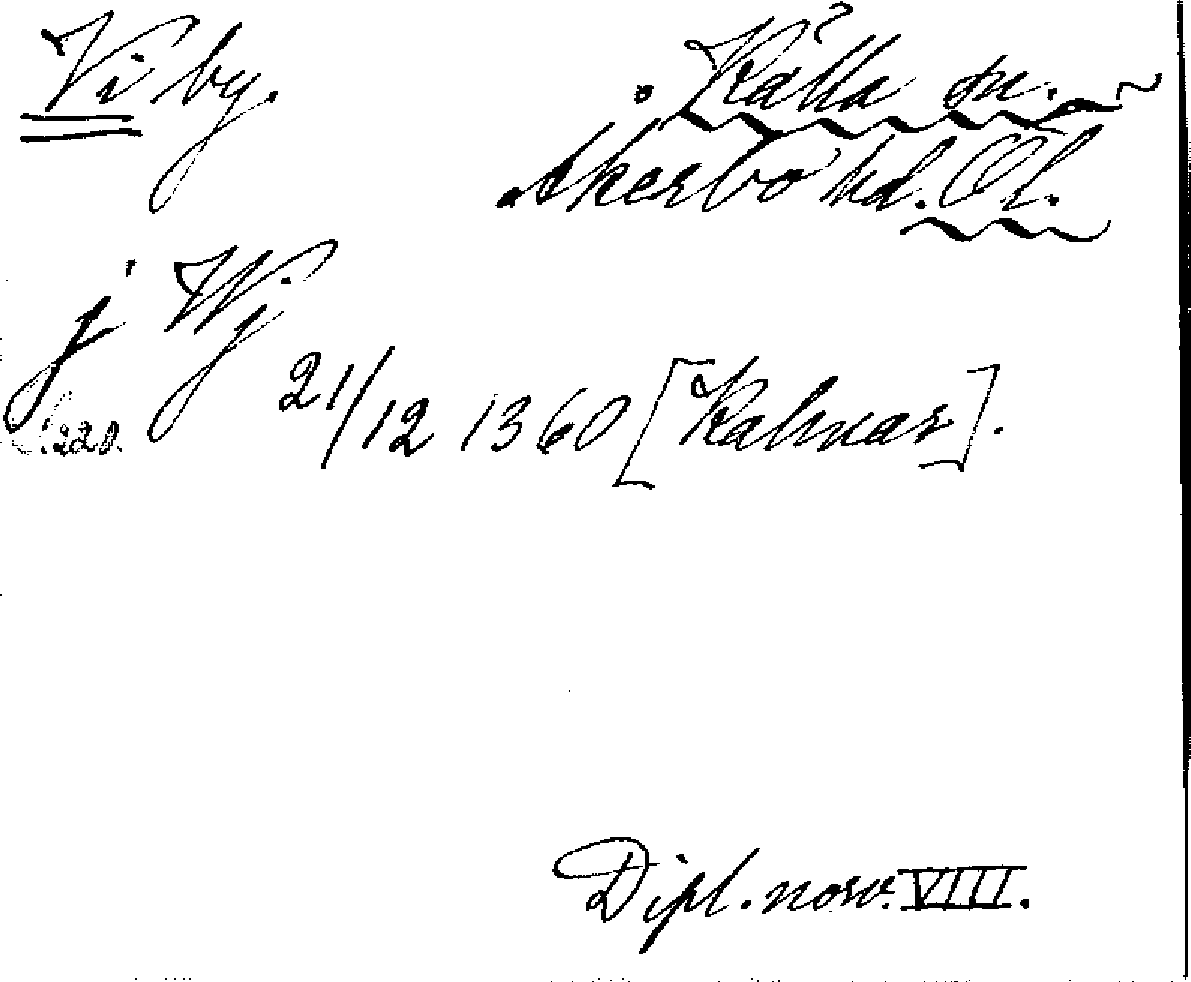 Vi by.
? Källa sn. ~
Åkerbo hd. Öl.
j Wj
21/12 1360 [Kalmar].
Dipl. norv. VIII.